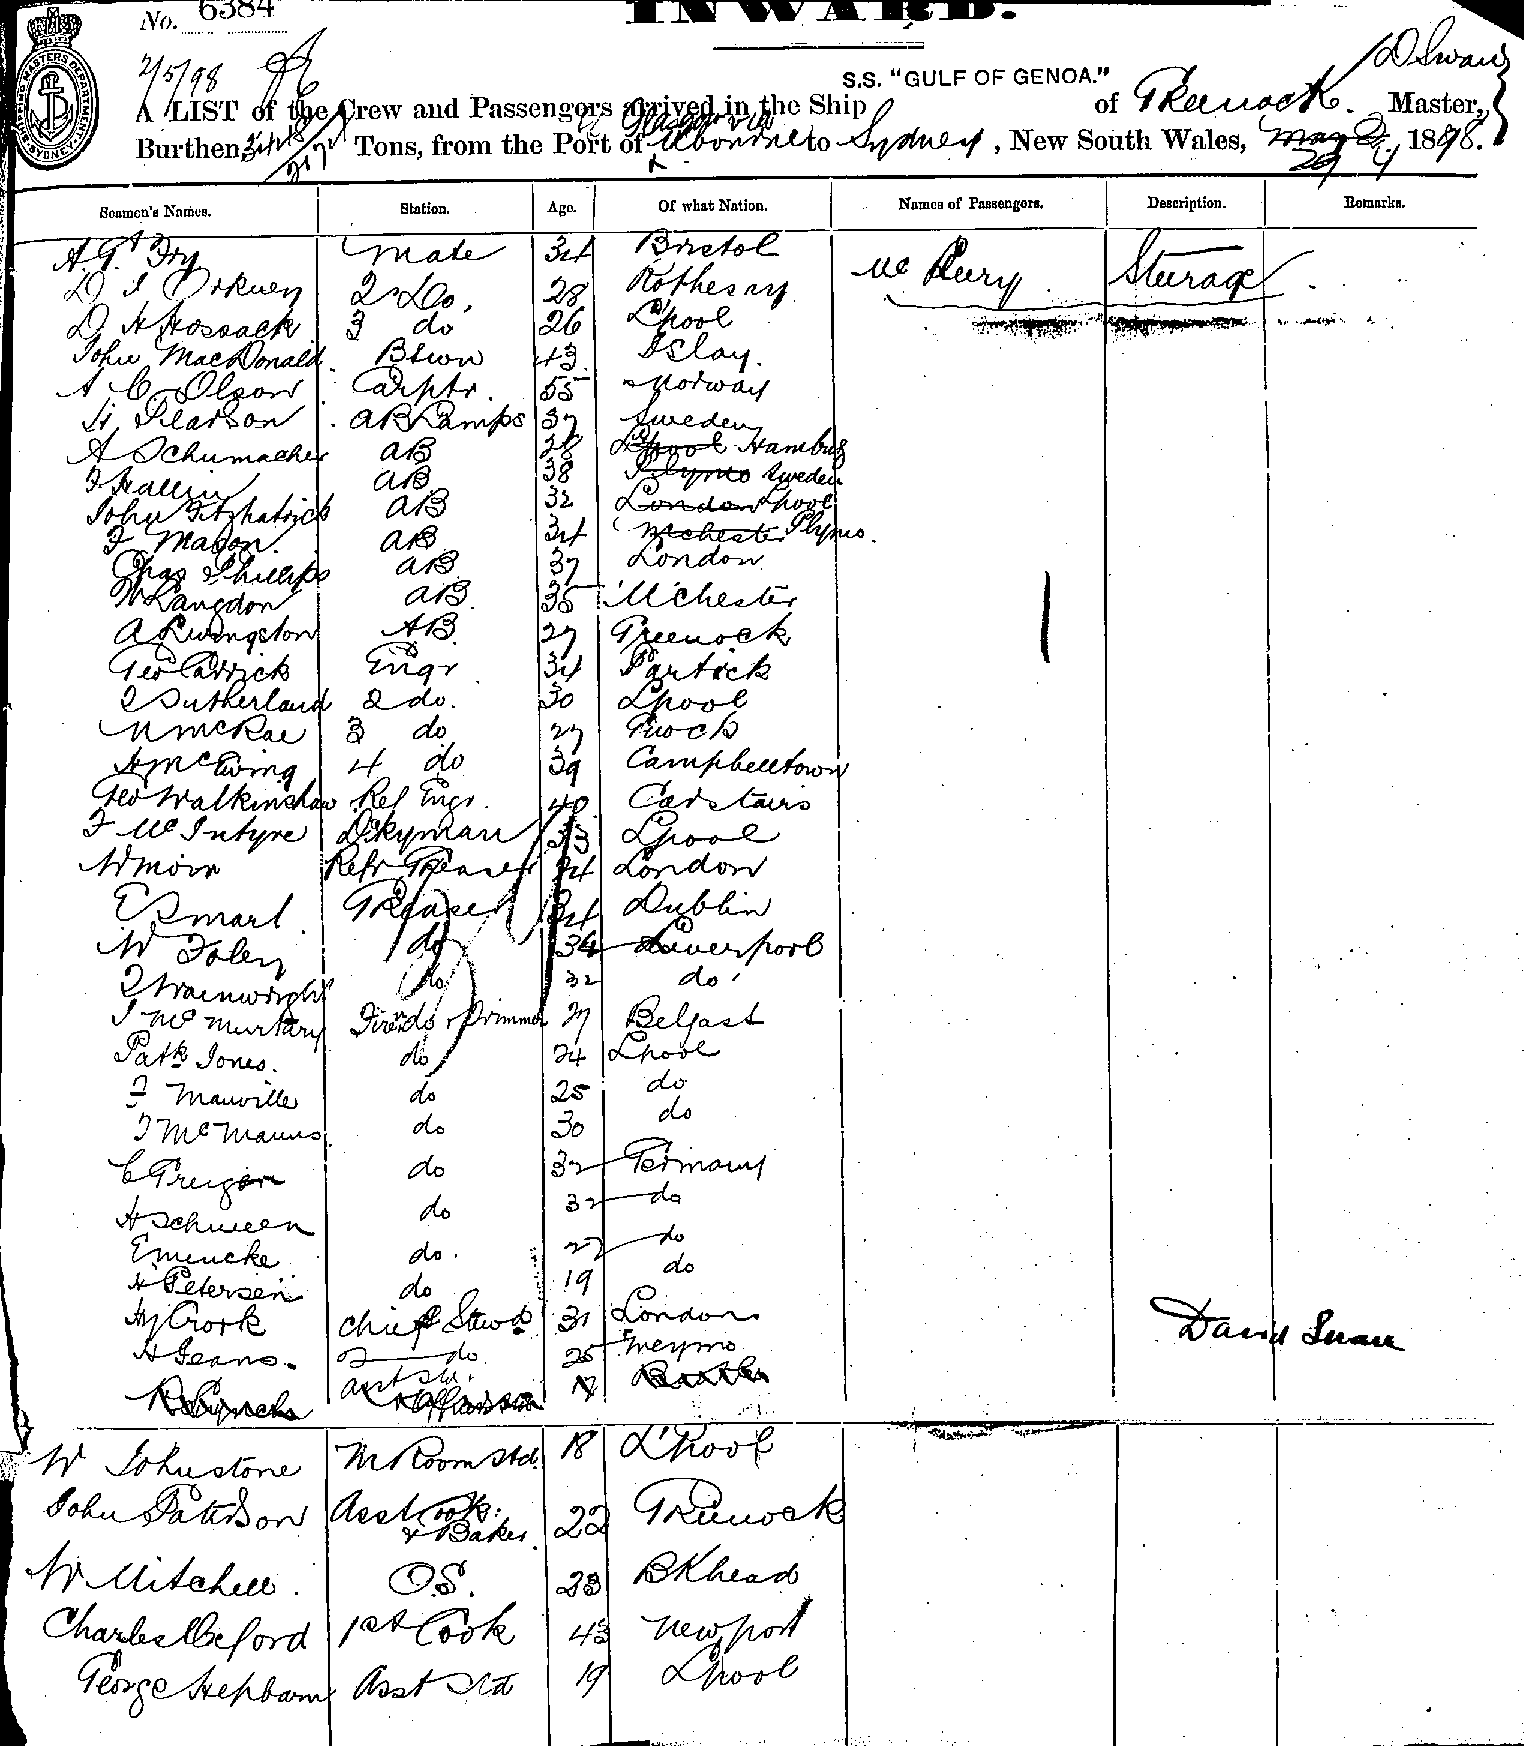 No. 6384
INWARD.
2/5/98
D Swan
S.S. "GULF OF GENOA."
A LIST of the Crew and Passengers arrived in the Ship of Greenock. Master,
Burthen Tons, from the Port of Glasgow via to Sydney, New South Wales, May 2 1898.
Seamen's Names. Station. Age. Of what Nation. Names of Passengers. Description. Remarks.
A. G. Fry Mate 34 Bristol
Mc Steerage
D I Orkney 2 Do. 28 Rothesay
D H Hossack 3 do 26 L'pool
John MacDonald. Btswn 43 Islay.
A C Olson Carptr. 55 Norway
H Pearson AB Lamps 37 Sweden
A Schumacher AB 28 L'pool Hamburg
F Hallin AB 38 Plymo Sweden
John Fitzpatrick AB 32 London Lpool
F Mason. AB 34 Mchester Plymo.
Chas Phillips AB 37 London
W Langdon AB. 35 M'Chester
A Livingston AB. 27 Greenock
Geo Carrick Engr 34 Partick
J Sutherland 2 do. 30 Lpool
M McRae 3 do 27 Gnock
H McEwing 4 do 39 Campbelltown
Geo Walkinshaw Ref Engr. 40 Carstairs
F McIntyre Dkyman 33 Lpool
W Moir Refr Greaser 24 London
E Smart Greaser 34 Dublin
W Foley do 36 Liverpool
J Wainwright do 32 do
J McMurtary & Trimmer 27 Belfast
Patk Jones. do 24 Lpool
F Manville do 25 do
J McManus do 30 do
C do 32 Germany
H Schween do 32 do
E Mencke do. 27 do
H Petersen do 19 do
Hy Crook Chief Stewd 31 London
H Jeans. 2 do 25 Weymo
David Swan
asst std. 17
W Johnstone M Room Std. 18 L'Pool
John Paterson Asst Cook: & Baker. 22 Greenock
W Mitchell. O.S. 23 BKhead
Charles 1st Cook 43 Newport
George Hepburn Asst Std 19 Lpool